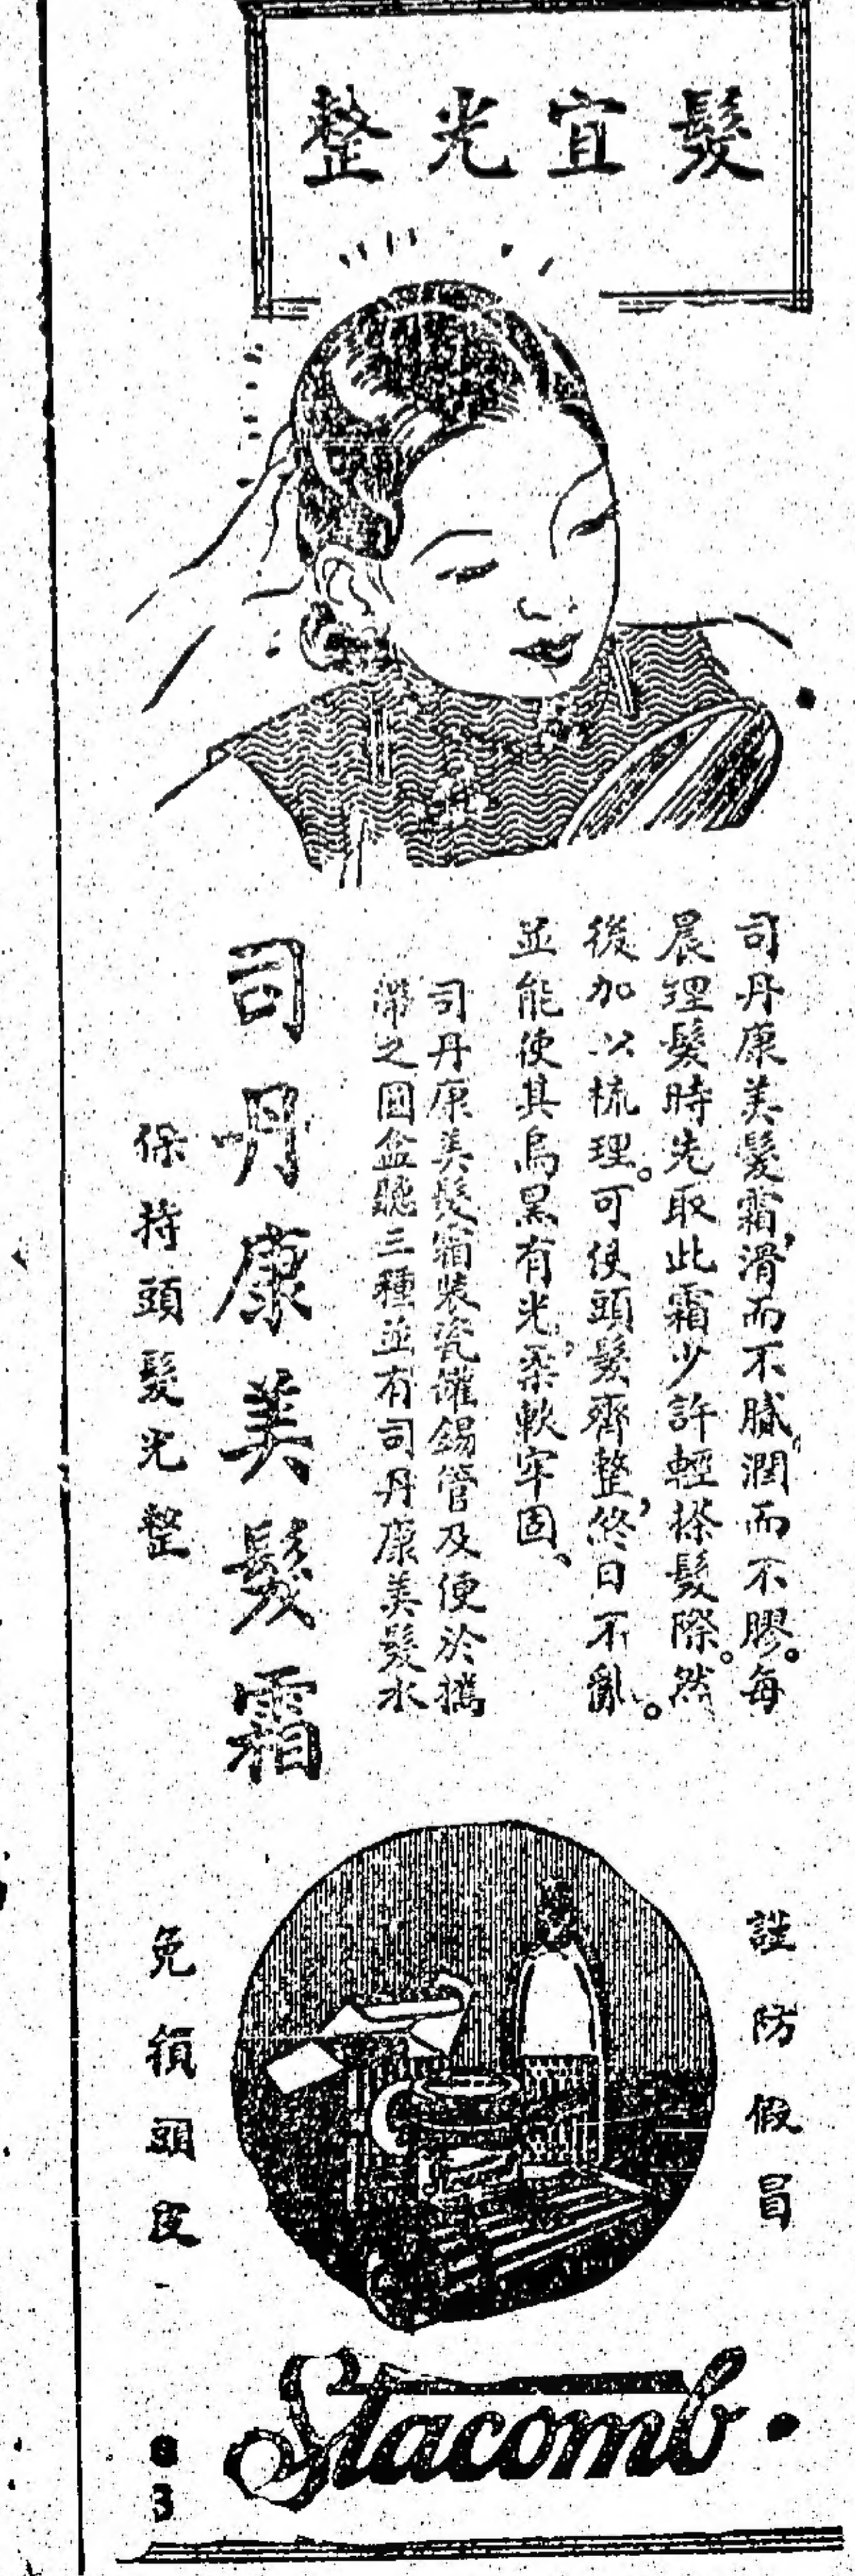 髮宜光整
司丹康美髮霜，滑而不膩，潤而不膠。每
晨理髮時先取此霜少許輕搽髮際。然
後加以梳理。可使頭髮齊整，終日不亂。
並能使其烏黑有光，柔軟牢固、
司丹康美髮霜裝瓷罐錫管及便於攜
帶之圓盒聽三種並有司丹康美髮水
司丹康美髮霜
保持頭髮光整
謹防假冒
免損頭皮
Stacomb